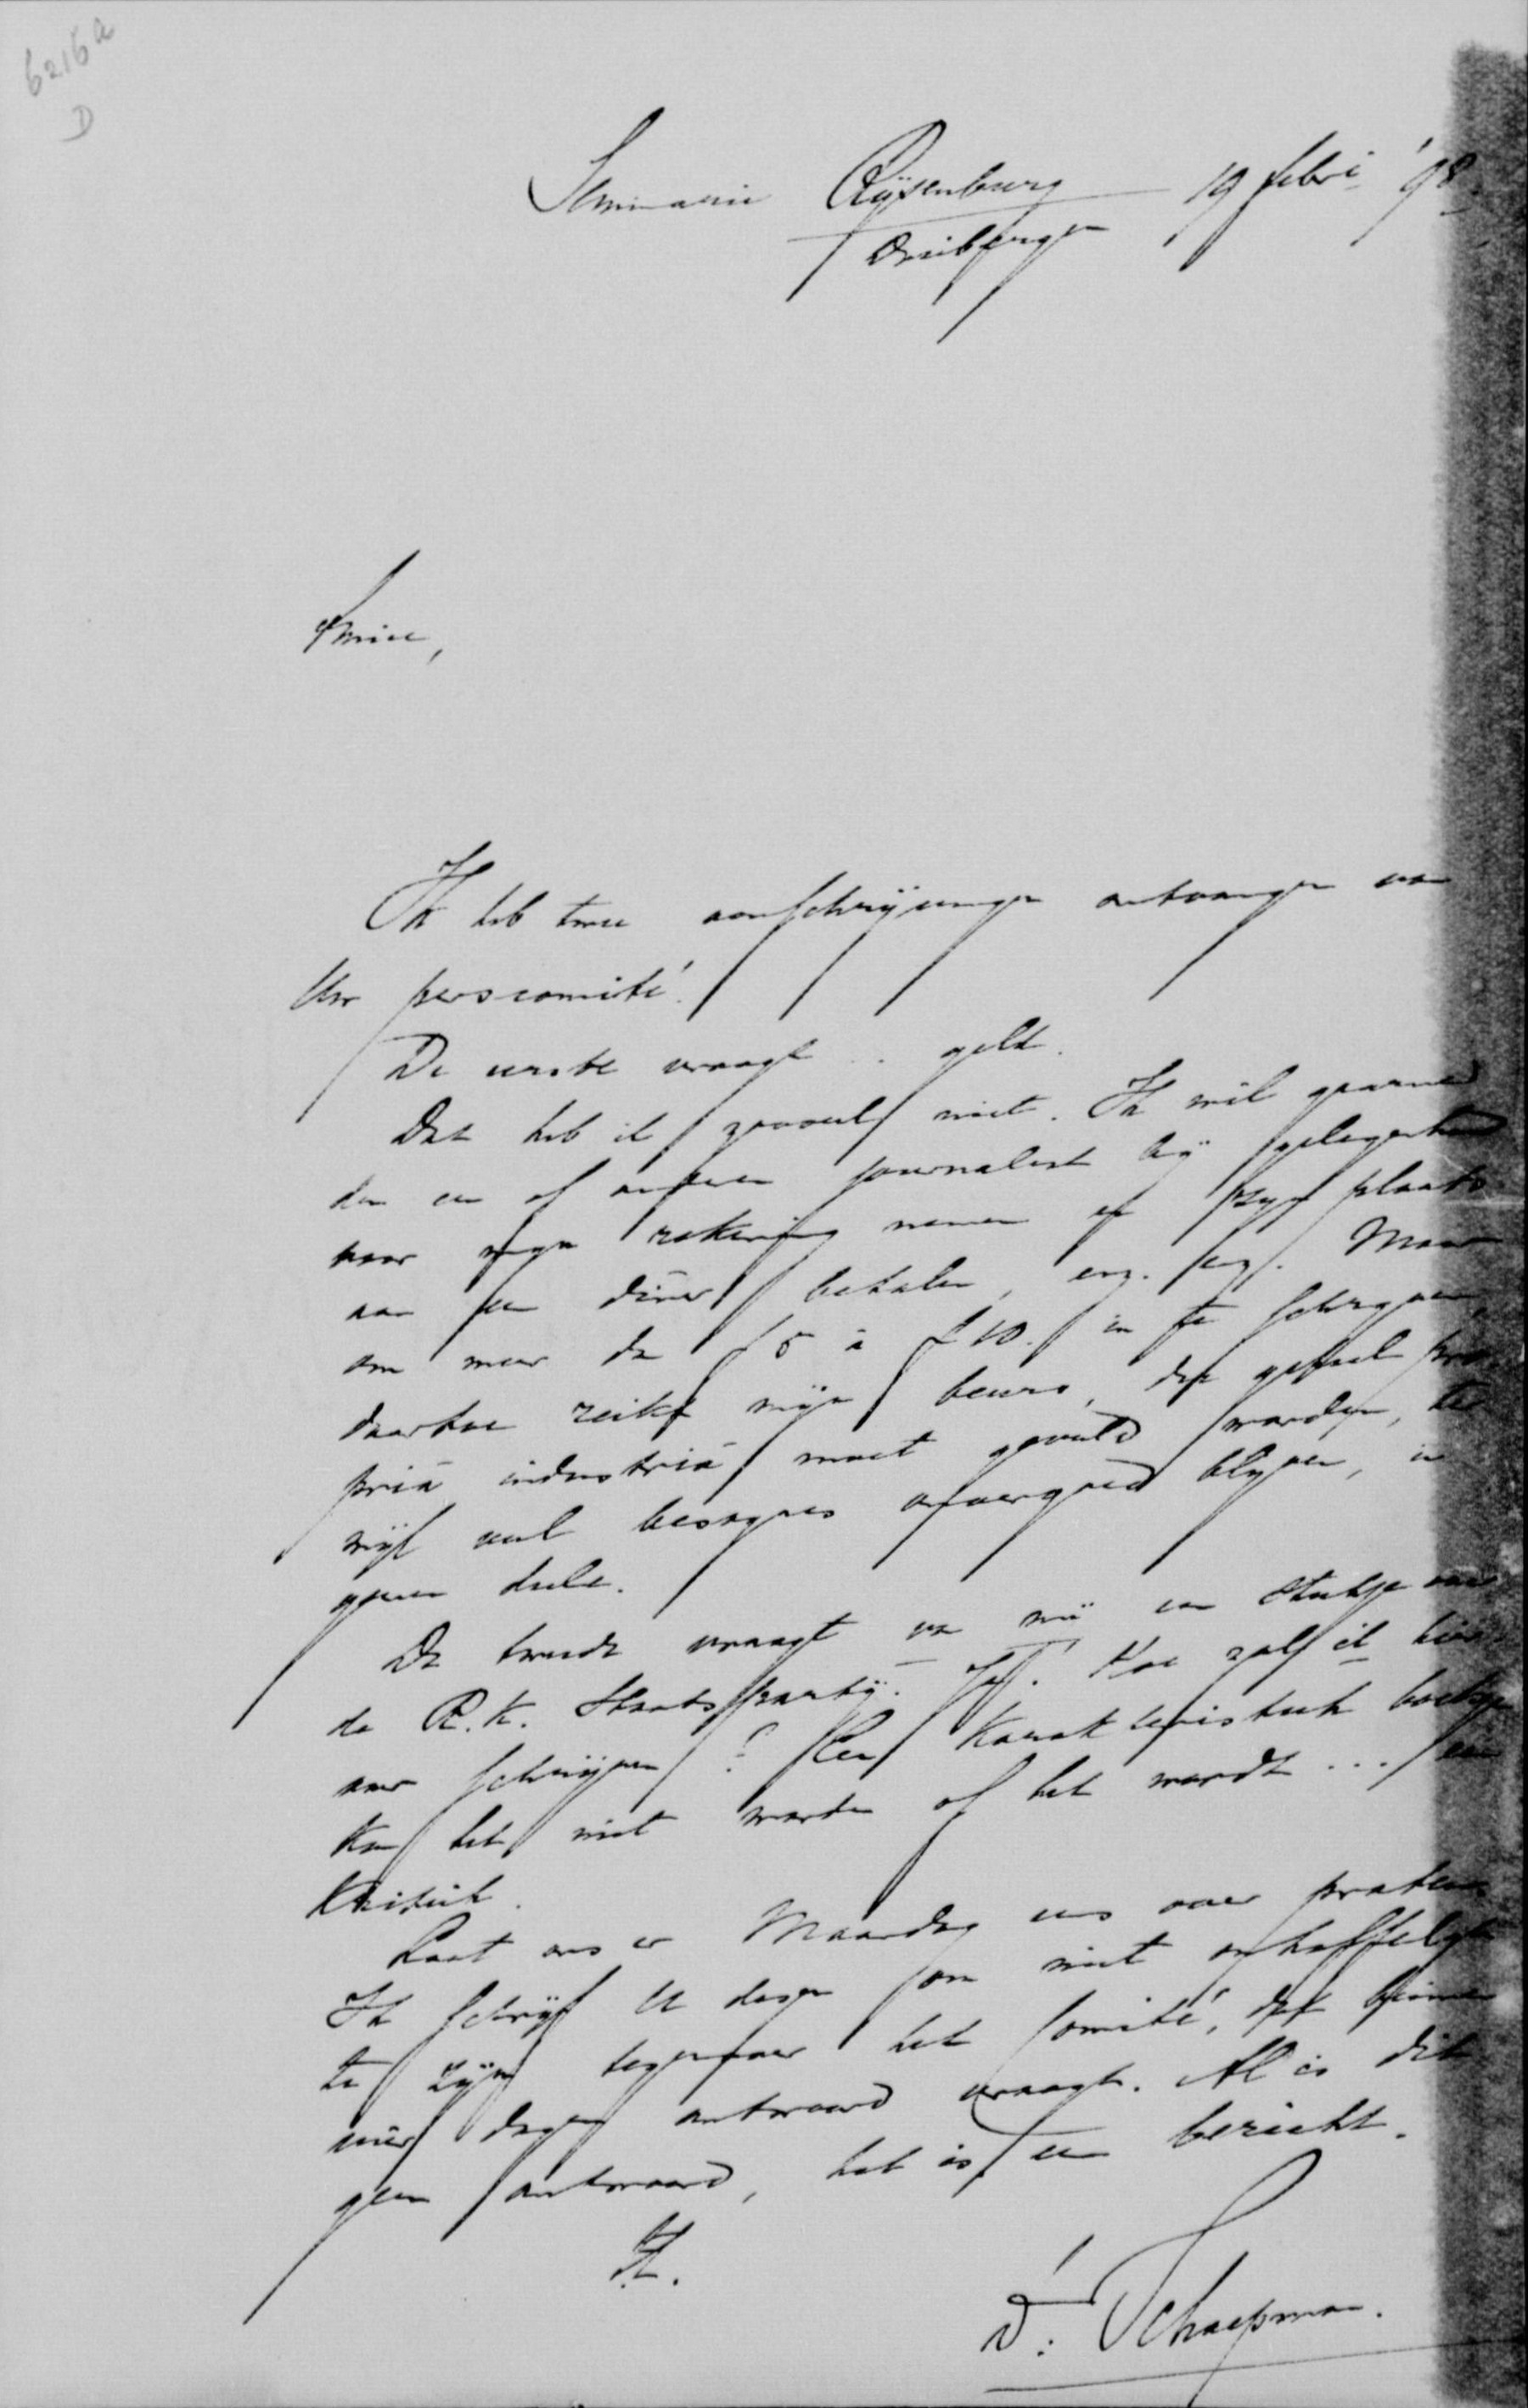 6216a
D
Seminarie Rijsenburg 19 febri '98.
Driebergen
Amice,
Ik heb twee aanschrijvingen ontvangen van
Uw perscomité.
De eerste vraagt .. geld.
Dat heb ik zooveel niet. Ik wil gaarne
den een of anderen journalist bij gelegenheid
voor mijn rekening nemen of zijn plaats
aan een diner betalen, enz. enz. Maar
om meer dan f 5 à f 10. in te schrijven,
daartoe reikt mijn beurs, die geheel pro-
pria industria moet gevuld worden, ter-
wijl veel besognes onvergoed blijven, in
geenen deele.
De tweede vraagt van mij een stukje over
de R.K. Staatspartij. Ja! Hoe zal ik hier-
over schrijven? Een karakteristiek
kan het niet worden of het wordt ... een
kritiek.
Laat ons er Maandag eens over praten.
Ik schrijf U dezen om niet onbeleefd
te zijn tegenover het comité, dat binnen
vier dagen antwoord vraagt. Al is dit
geen antwoord, het is een bericht.
tt.
Dr. Schaepman.